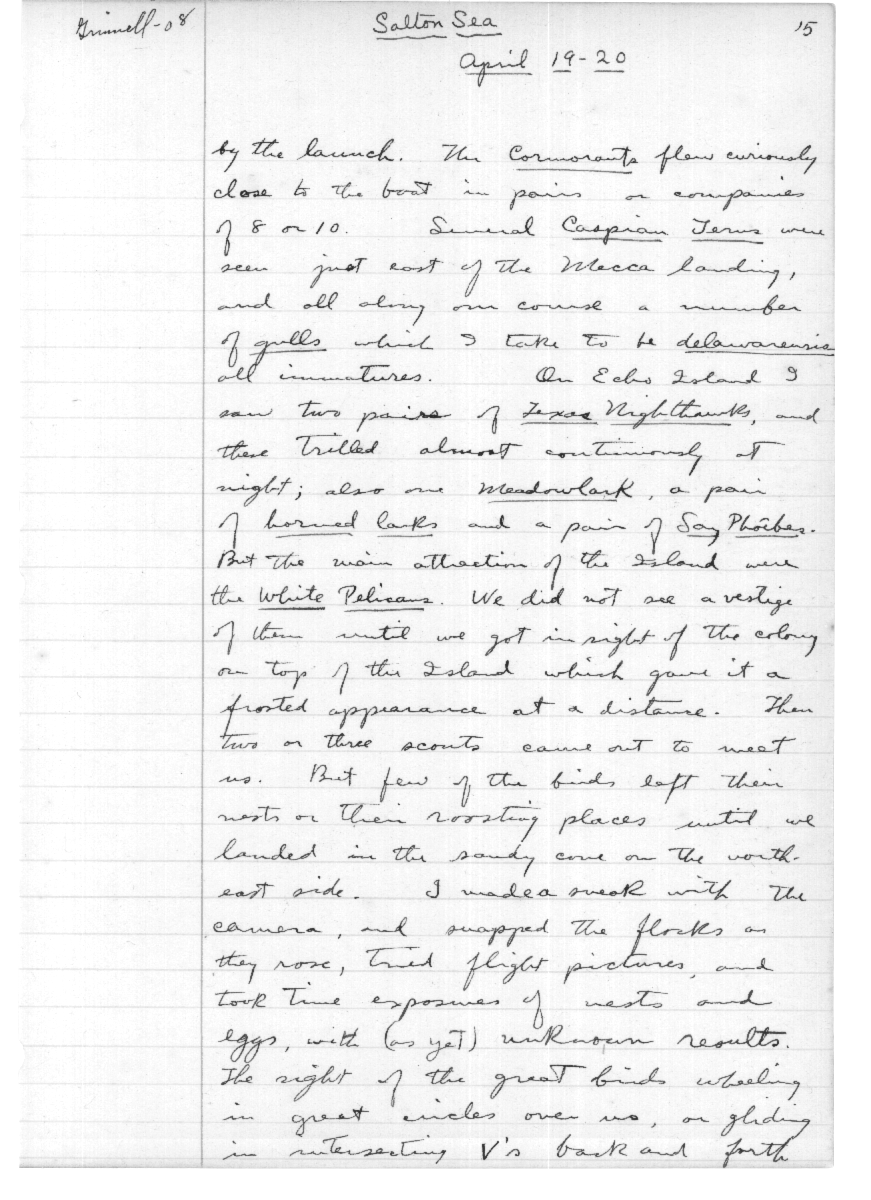 Grinnell-08
Salton Sea
15
April 19-20
by the launch. The Cormorants flew curiously
close to the boat in pairs or companies
of 8 or 10. Several Caspian Terns were
seen just east of the Mecca landing,
and all along our course a number
of gulls which I take to be delawarensis
all immatures. On Echo Island I
saw two pairs of Texas Nighthawks, and
these trilled almost continuously at
night; also one Meadowlark, a pair
of horned larks and a pair of Say Phoebes.
But the main attraction of the Island were
the White Pelicans. We did not see a vestige
of them until we got in sight of the colony
on top of the Island which gave it a
frosted appearance at a distance. Then
two or three scouts came out to meet
us. But few of the birds left their
nests or their roosting places until we
landed in the sandy cove on the north-
east side. I made a sneak with the
camera, and snapped the flocks as
they rose, tried flight pictures, and
took time exposures of nests and
eggs, with (as yet) unknown results.
The sight of the great birds wheeling
in great circles over us, or gliding
in intersecting V's back and forth